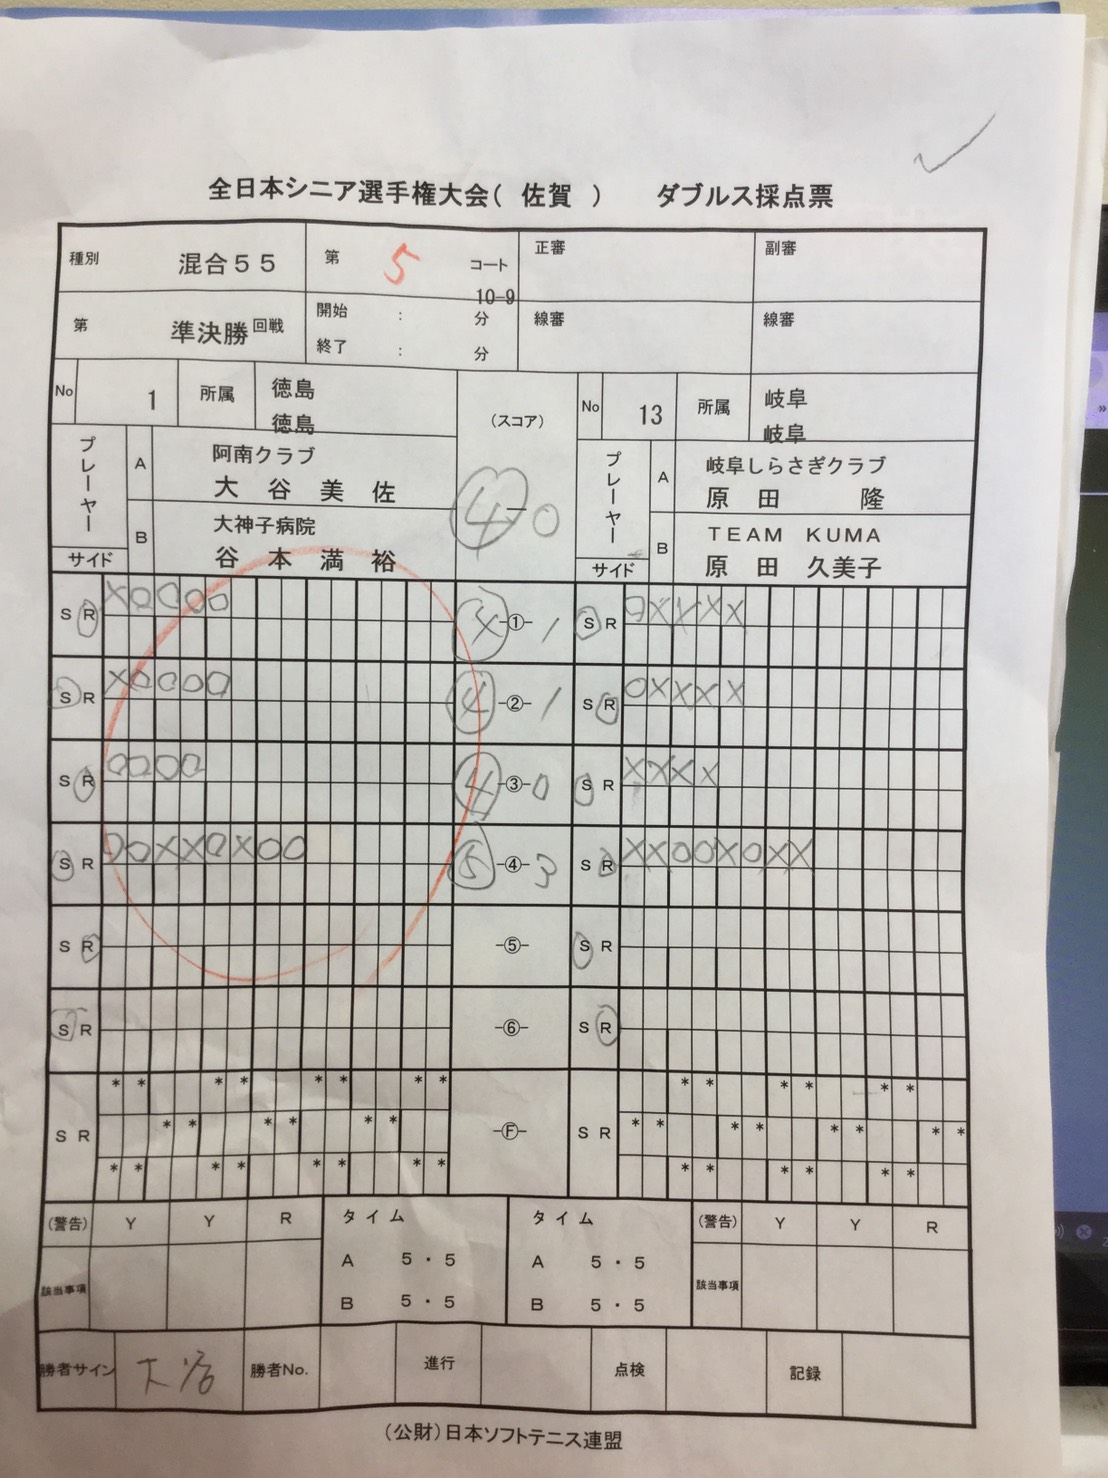 全日本シニア選手権大会（ 佐賀 ） ダブルス採点票
種別 混合５５ 第 5 コート 正審 副審
10-9
第 準決勝 回戦 開始 ： 分 線審 線審
終了 ： 分
No 1 所属 徳島 (スコア) No 13 所属 岐阜
徳島 岐阜
プレーヤー A 阿南クラブ プレーヤー A 岐阜しらさぎクラブ
大谷美佐 ④-0 原田 隆
B 大神子病院 B ＴＥＡＭ ＫＵＭＡ
サイド 谷本満裕 サイド 原田 久美子
S R X0000 -①- 1 S R 0XXXX
S R X0000 4 -②- 1 S R 0XXXX
S R 0000 4 -③- 0 S R XXXX
S R 00XX0X00 5 -④- 3 S R XX00X0XX
S R -⑤- S R
S R -⑥- S R
* * * * * * * * * * * * * *
S R * * * * * * -Ⓕ- S R * * * * * * * *
* * * * * * * * * * * * * *
(警告) Y Y R タイム タイム (警告) Y Y R
A ５・５ A ５・５
該当事項 B ５・５ B ５・５ 該当事項
勝者サイン 大谷 勝者No. 進行 点検 記録
（公財）日本ソフトテニス連盟